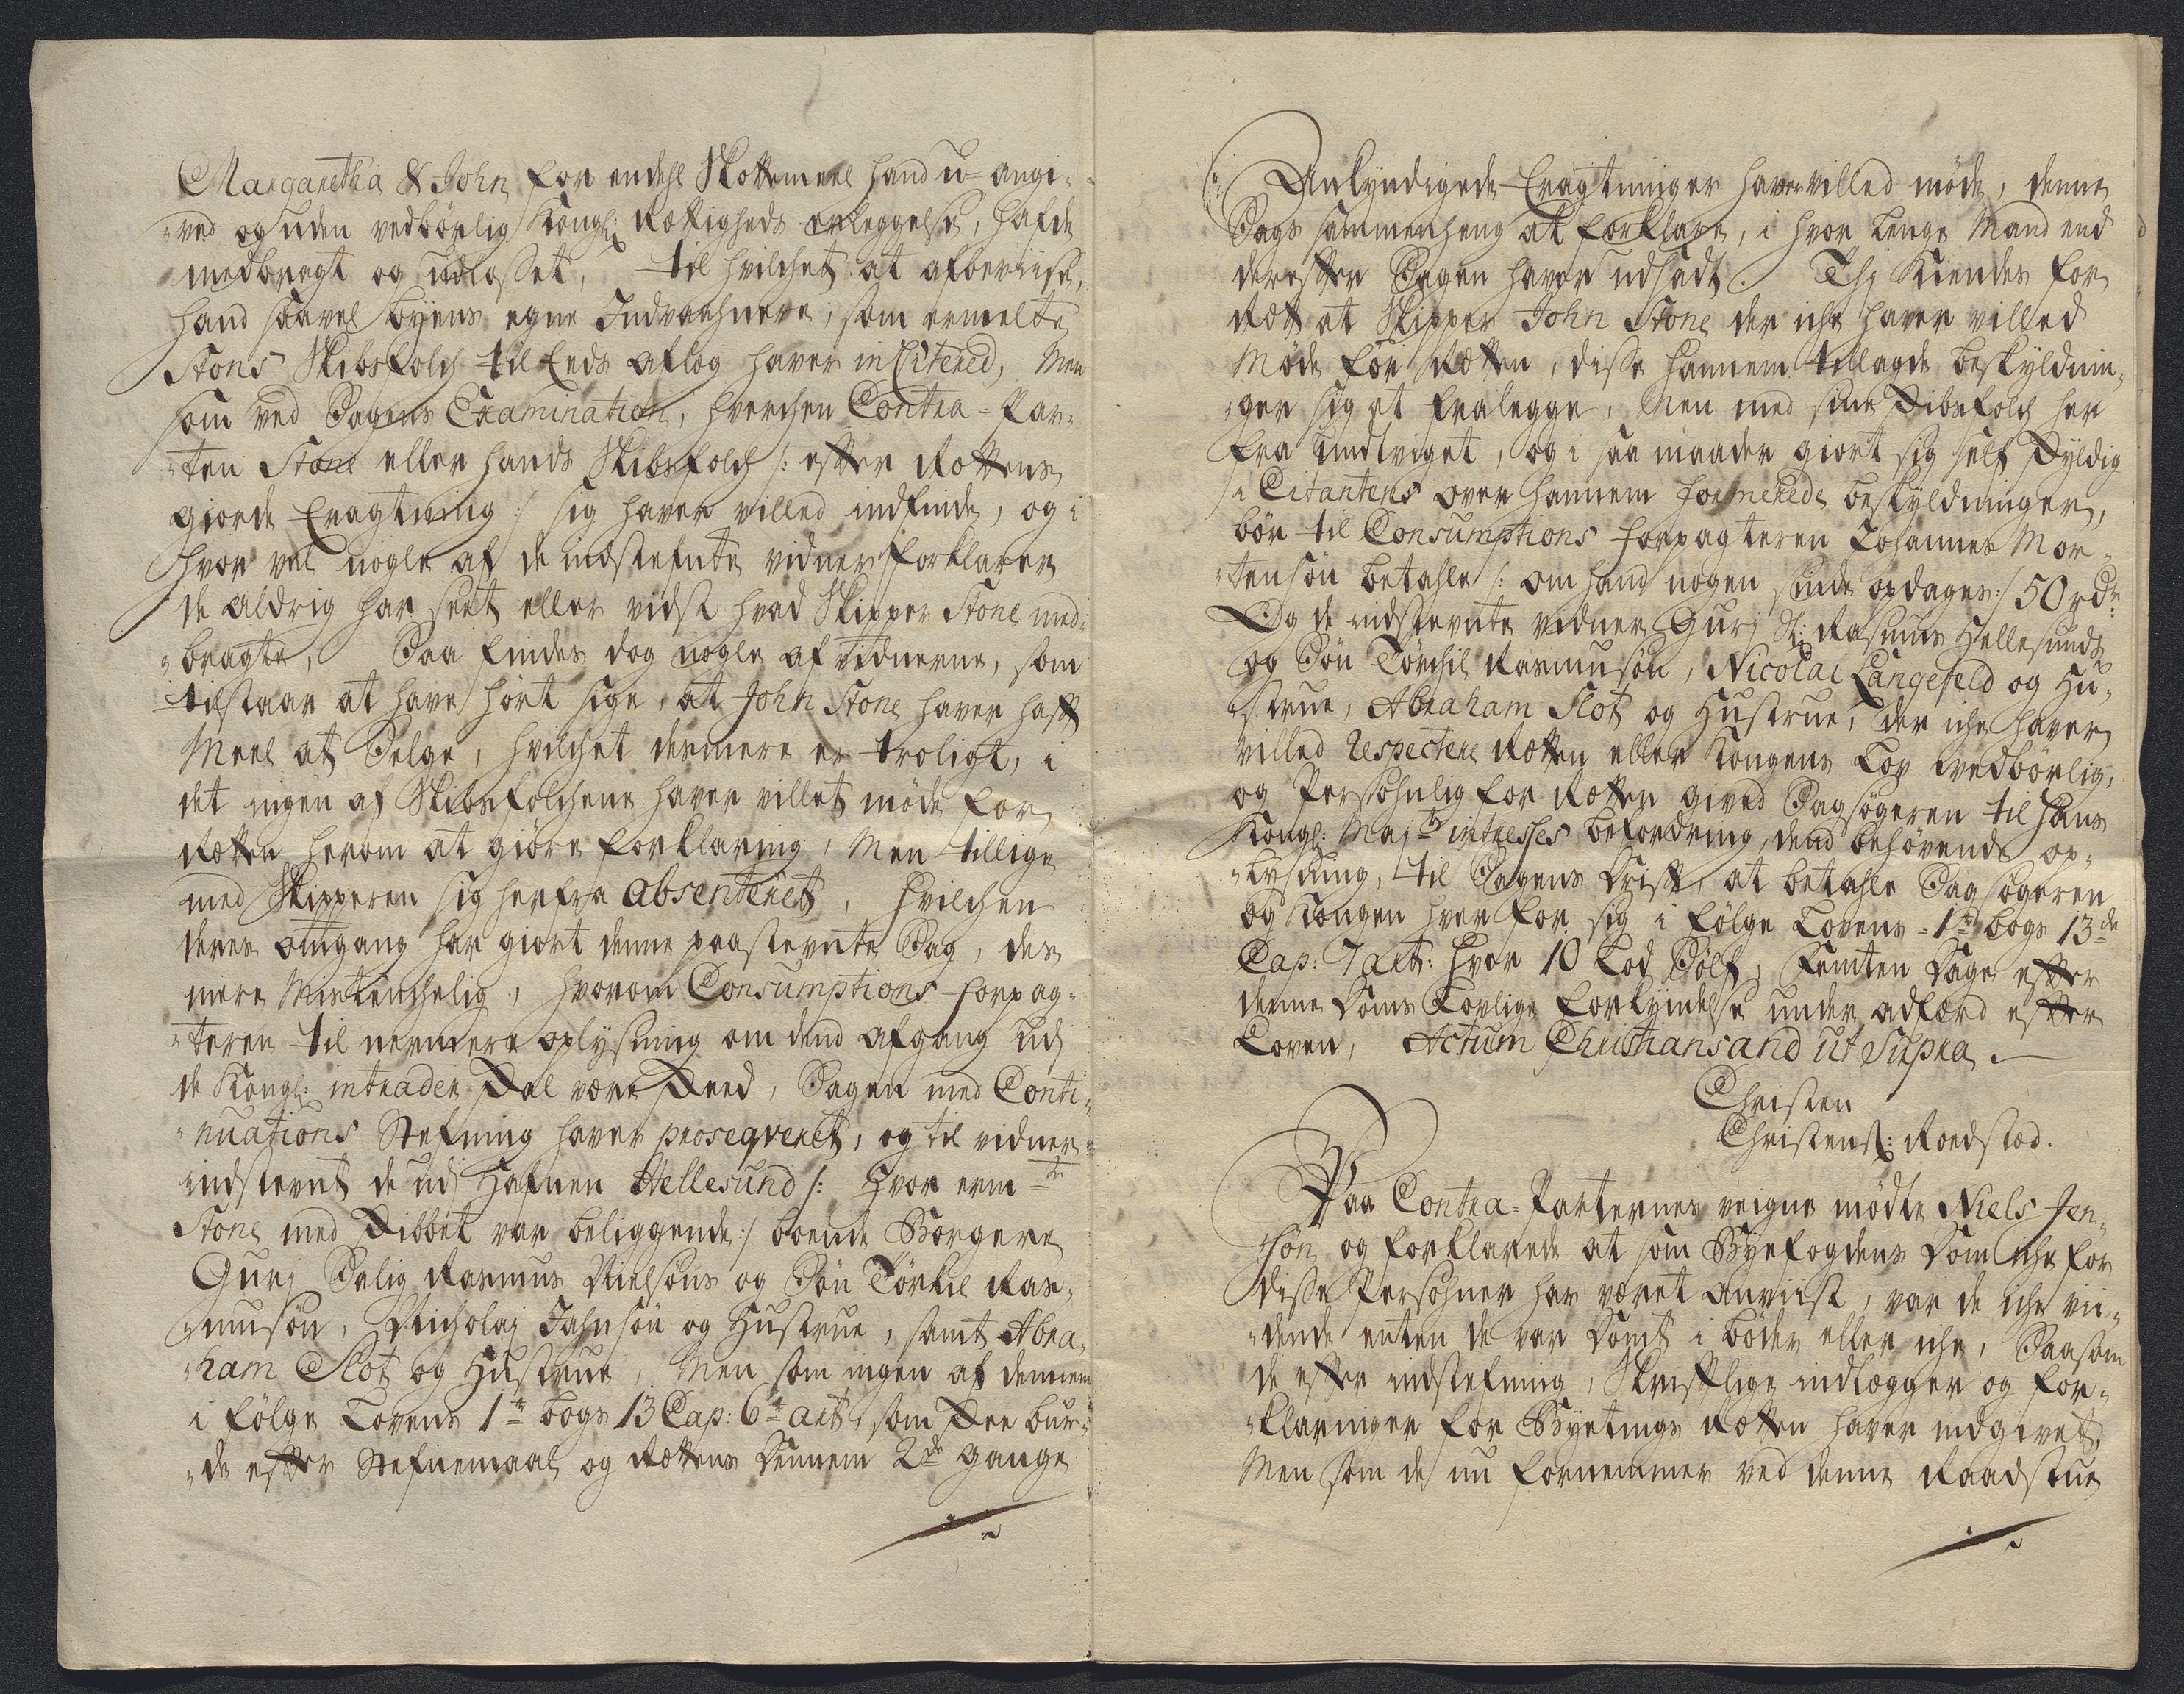 Margaretha & John for endehl Skottemeel hand u-angi-
ved og uden vedbörlig Kongl: Rettigheds erleggelse, hafde
medbragt og udlosset, til hvilchet at afbeviise,
hand saavel byens egne Indvaahnere, som ermelte
Stons Skibsfolch til Eeds aflæg haver inCitered, Men
som ved Sagens Examination, hverchen Contra-Par-
ten Stone eller hands Skibsfolch /: efter Rettens
giorde Eragtning :/ sig haver villed indfinde, og i
hvor vel nogle af de indstefnte vidner forklarer
de aldrig har seet eller vidst hvad Skipper Stone med-
bragte, Saa findes dog nogle af vidnerne, som
tilstaar at have hört sige, at John Stone haver hafft
Meel at Selge, hvilchet desmere er troligt, i
det ingen af Skibsfolchene haver villet möde for
Retten herom at giöre forklaring, Men tillige
med Skipperen sig herfra absenteret, hvilchen
deres omgang har giort denne paastevnte Sag, des
mere Mistenchelig, hvorom Consumptions-forpag-
teren til nermere oplysning om dend afgang udj
de Kongl: intrader Skal være Skeed, Sagen med Conti-
nuations Stefning haver proseqveret, og til vidner
indstevnt de udj Hafnen Hellesund /: hvor erm-te
Stone med Skibbet var beliggende :/ boende Borgere
Gurj Salig Rasmus Nielsöns og Sön Törkil Ras-
musön, Nicholaj Jahnsön og Hustrue, samt Abra-
ham Slot og Hustrue, Men som ingen af dennem
i fölge Lovens 1te bogs 13 Cap: 6te art, som Skee bur-
de efter Stefnemaal og Rettens Dennem 2de gange
Ankyndigede Eragtninger haver villed möde, denne
Sags sammenheng at forklare, i hvor lenge Mand end
derefter Sagen haver udsadt. Thj Kiendes for
Rett at Skipper John Stone der iche haver villed
Möde for Retten, disse hannem tillagde beskyldnin-
ger sig at fralegge, Men med sine Skibsfolch her
fra undviget, og i saa maader giort sig self Skyldig
i Citantens over hannem formerede beskyldninger,
bör til Consumptions forpagteren Johannes Mor-
tensön betahle /: om hand nogen sinde opdages :/ 50 rdr
Og de indstevnte vidner Gurj Sl: Rasmus Hellesunds
og Sön Törchil Rasmusön, Nicolai Langefeld og Hu-
strue, Abraham Slot og Hustrue, der iche haver
villed respectere Retten eller Kongens Lov vedbörlig,
og Persohnlig for Retten gived Sagsögeren til Hans
Kongl: Maj-ts intresses befordring, dend behövende op-
lysning, til Sagens Drift, at betahle Sagsögeren
og Kongen hver for sig i fölge Lovens 1te bogs 13de
Cap: 7 art: hver 10 Lod Sölf, Femten Dage efter
denne Doms Lovlige forkyndelse under adferd efter
Loven, Actum Christiansand ut Supra.
Christen
Christens: Roedsted.
Paa Contra-Parternes veigne mödte Niels Jen-
sön og forklarede at som Byefogdens Dom iche for
disse Persohner har været anviist, var de iche vii-
dende enten de var Dömt i böder eller iche, Saasom
de efter indstefning, Skrifftlige indlegger og for-
klaringer for Byetings Retten haver indgivet,
Men som de nu fornemmer ved denne Raadstue